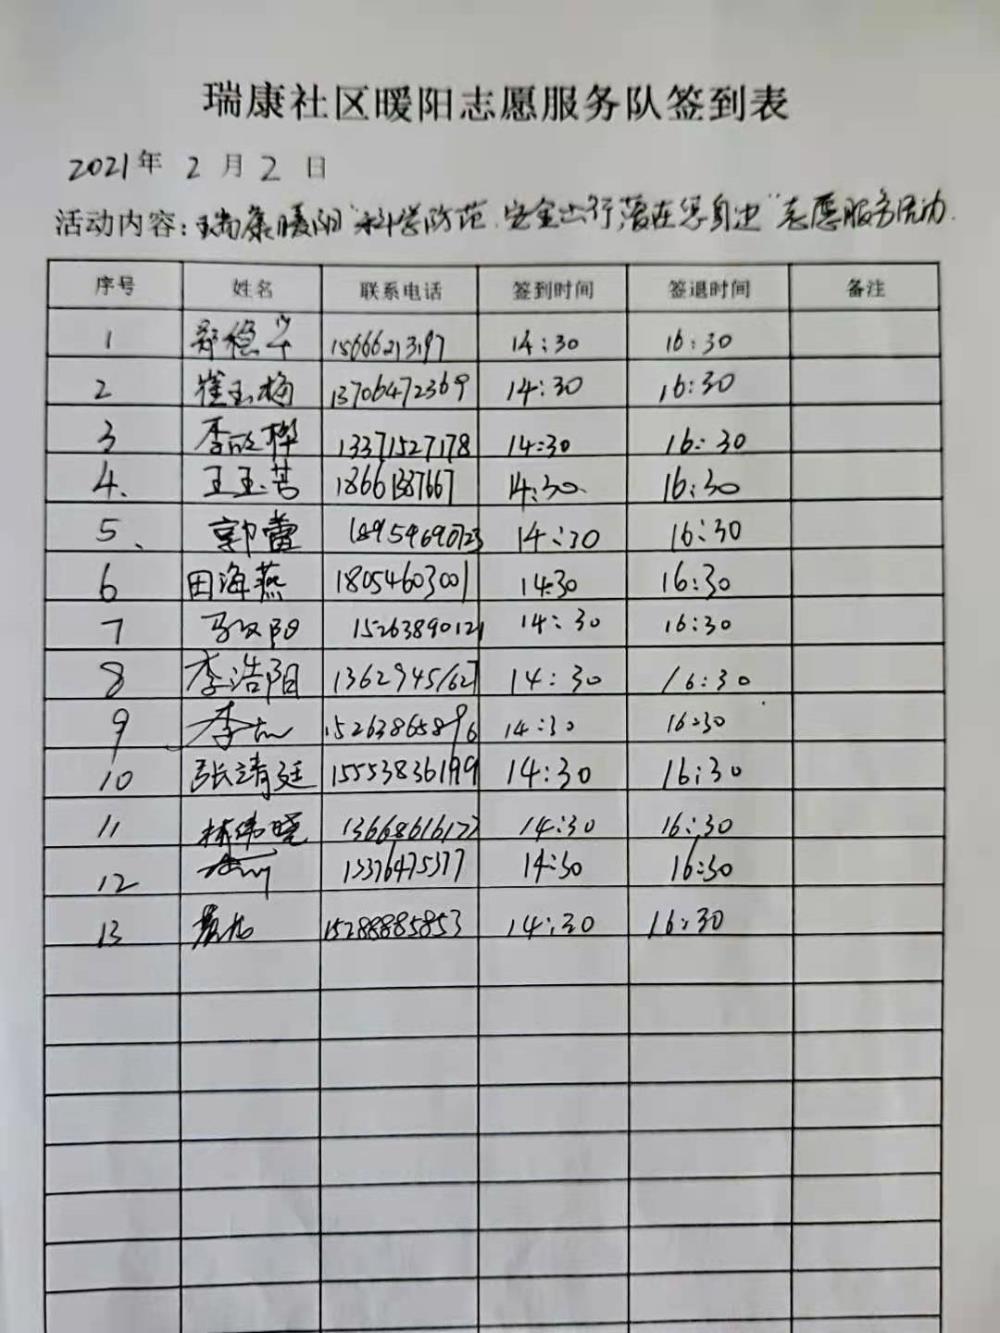 瑞康社区暖阳志愿服务队签到表
2021年 2 月 2 日
活动内容：瑞康暖阳"科学防范，安全出行，落在您身边"志愿服务活动.
序号 姓名 联系电话 签到时间 签退时间 备注
1 15666213197 14:30 16:30
2 崔玉梅 13706472369 14:30 16:30
3 李欣桦 13371527178 14:30 16:30
4. 14:30 16:30
5、 郭蕾 14:30 16:30
6 田海燕 18054603001 14:30 16:30
7 15263890121 14:30 16:30
8 李浩阳 13629451627 14:30 16:30
9 15263865896 14:30 16:30
10 张靖廷 15553836199 14:30 16:30
11 林伟晓 14:30 16:30
12 13376475377 14:30 16:30
13 15288885853 14:30 16:30